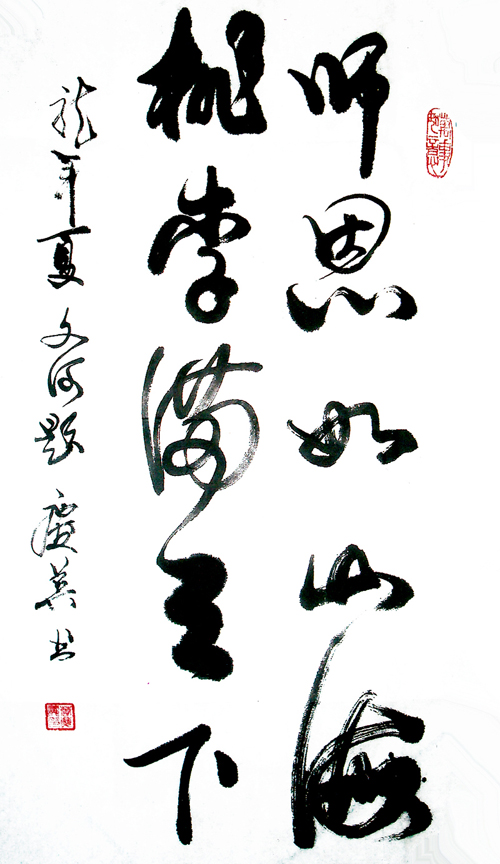 师恩如山海
桃李满天下
龙年夏 文河题 庆英书